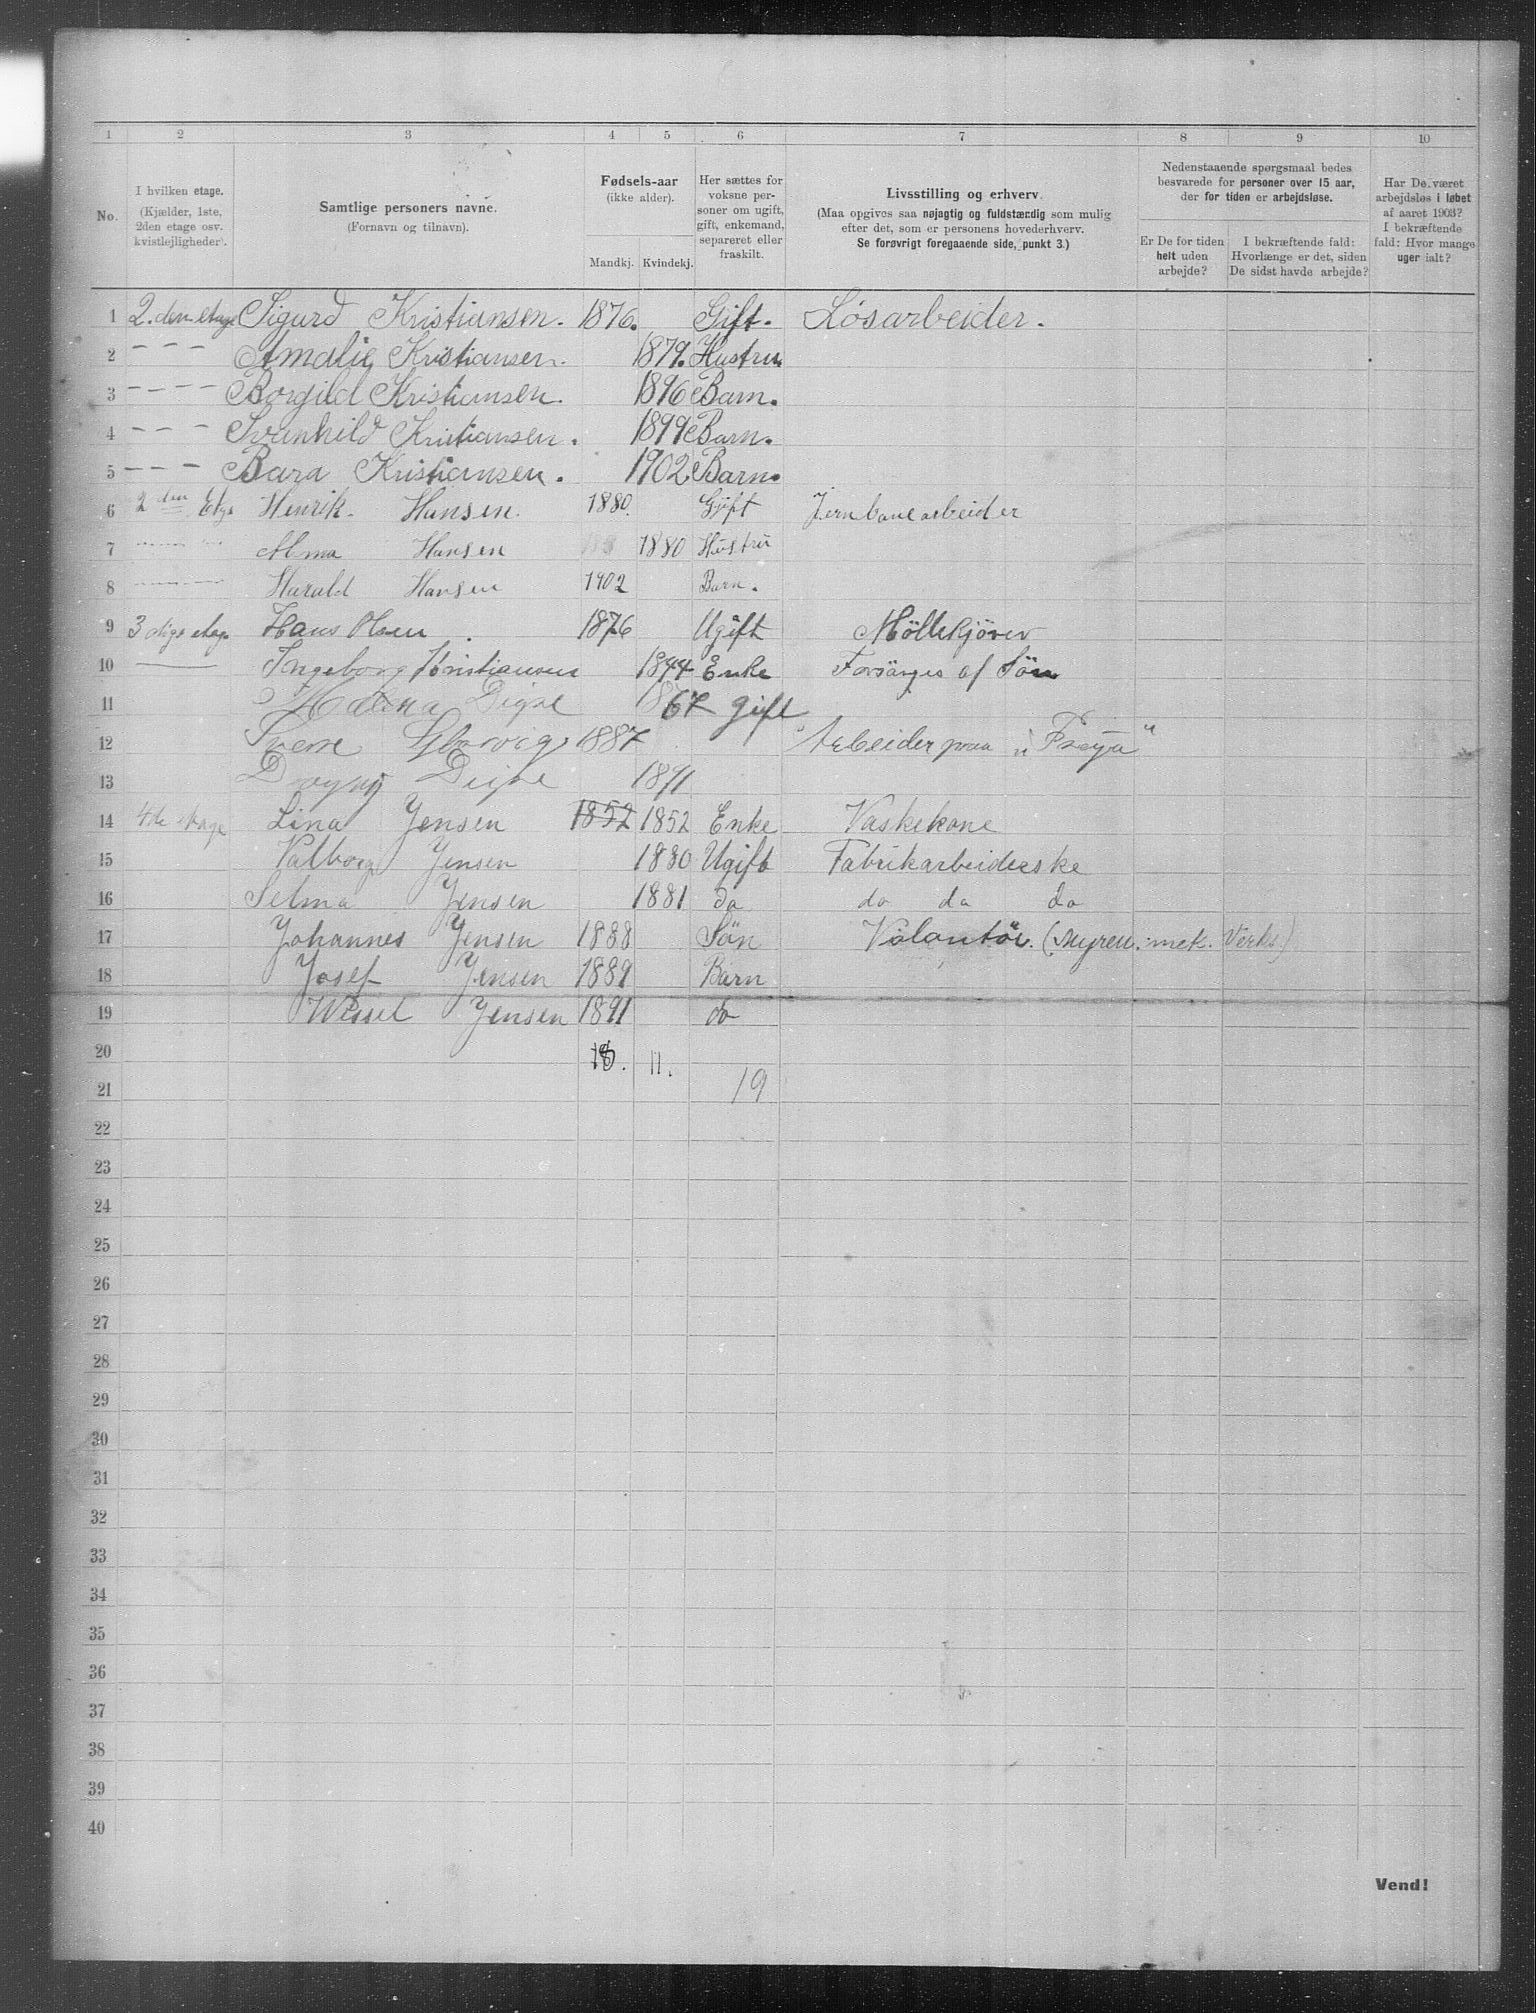 1 2 3 4 5 6 7 8 9 10
No.
I hvilken etage. (Kjælder, 1ste, 2den etage osv. kvistlejligheder).
Samtlige personers navne. (Fornavn og tilnavn).
Fødsels-aar (ikke alder). Mandkj. Kvindekj.
Her sættes for voksne personer om ugift, gift, enkemand, separeret eller fraskilt.
Livsstilling og erhverv. (Maa opgives saa nøjagtig og fuldstændig som mulig efter det, som er personens hovederhverv. Se forøvrigt foregaaende side, punkt 3.)
Nedenstaaende spørgsmaal bedes besvarede for personer over 15 aar, der for tiden er arbejdsløse.
Er De for tiden helt uden arbejde?
I bekræftende fald: Hvorlænge er det, siden De sidst havde arbejde?
Har De været arbejdsløs i løbet af aaret 1903? I bekræftende fald: Hvor mange uger ialt?
1 2.den etage Sigurd Kristiansen. 1876. Gift. Løsarbeider.
2 – – – Amalie Kristiansen. 1879. Hustru
3 – – – – Borgild Kristiansen. 1896 Barn.
4 – – – Svanhild Kristiansen. 1899 Barn.
5 – – – Bara Kristiansen. 1902 Barn.
6 2den Etge Henrik Hansen. 1880. Gift Jernbanearbeider
7 Alma Hansen 1880 Hustru
8 Harald Hansen 1902 Barn.
9 3 etage Hans Olsen 1876 Ugift Møllekjører
10 Ingeborg Kristiansen 1844 Enke Forsørges af Søn
11 1867 gift
12 Sverre 1887 Arbeider paa "Freya"
13 Dagny 1891
14 4de etage Lina Jensen 1852 1852 Enke Vaskekone
15 Valborg Jensen 1880 Ugift Fabrikarbeiderske
16 Selma Jensen 1881 do do do do
17 Johannes Jensen 1888 Søn Volontør. (Myren. mek. Verks)
18 Josef Jensen 1889 Barn
19 Wessel Jensen 1891 do
20 11.
21 19
22
23
24
25
26
27
28
29
30
31
32
33
34
35
36
37
38
39
40
Vend!